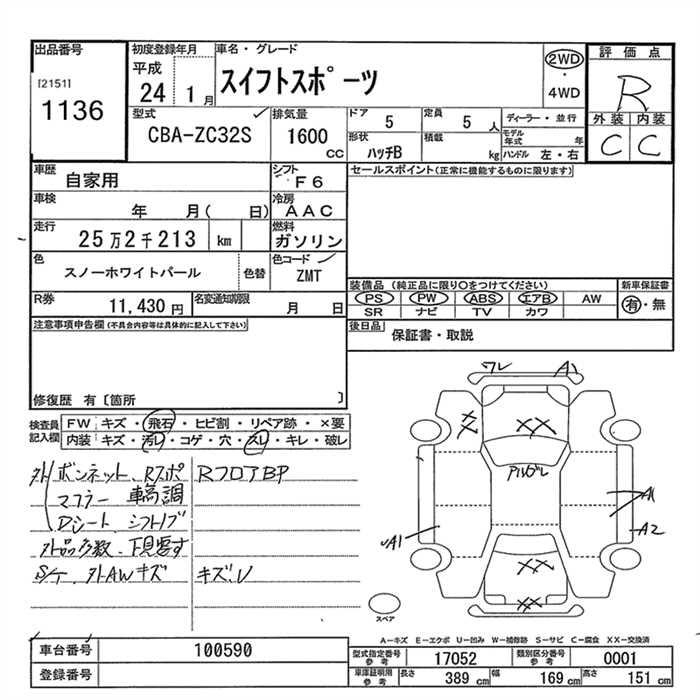 出品番号
[2151]
1136
初度登録年月
平成
24 1 月
車名・グレード
スイフトスポーツ
2WD
・
4WD
評価点
R
外装 内装
C C
型式
CBA-ZC32S
排気量
1600
CC
ドア
5
定員
5 人
ディーラー・並行
形状
ハッチB
積載
kg
モデル年式 年
ハンドル 左・右
車歴
自家用
シフト
F6
セールスポイント(正常に機能するものに限ります)
車検
年 月( 日)
冷房
AAC
走行
25万2千213 km
燃料
ガソリン
色
スノーホワイトパール
色替
色コード
ZMT
装備品 (純正品に限り〇をつけてください)
新車保証書
PS PW ABS エアB AW
SR ナビ TV カワ
有・無
R券
11,430 円
名変通知期限
月 日
後日品
保証書・取説
注意事項申告欄(不具合内容等は具体的に記入して下さい)
修復歴 有〔箇所 〕
検査員
記入欄
FW キズ・飛石・ヒビ割・リペア跡・×要
内装 キズ・汚レ・コゲ・穴・スレ・キレ・破レ
外 ボンネット、Rスポ
マフラー 車高調
Dシート、シフトノブ
外品多数、下見要す
S/ケ、外AWキズ
RフロアBP
キズ、U
ワレ
A2
XX
XX
XX
XX
A1
A2
A1
スペア
A-キズ E-エクボ U-凹み W-補修跡 S-サビ C-腐食 XX-交換済
車台番号
100590
登録番号
型式指定番号
参考
17052
類別区分番号
参考
0001
車庫証明用
参考
長さ
389 cm
幅
169 cm
高さ
151 cm